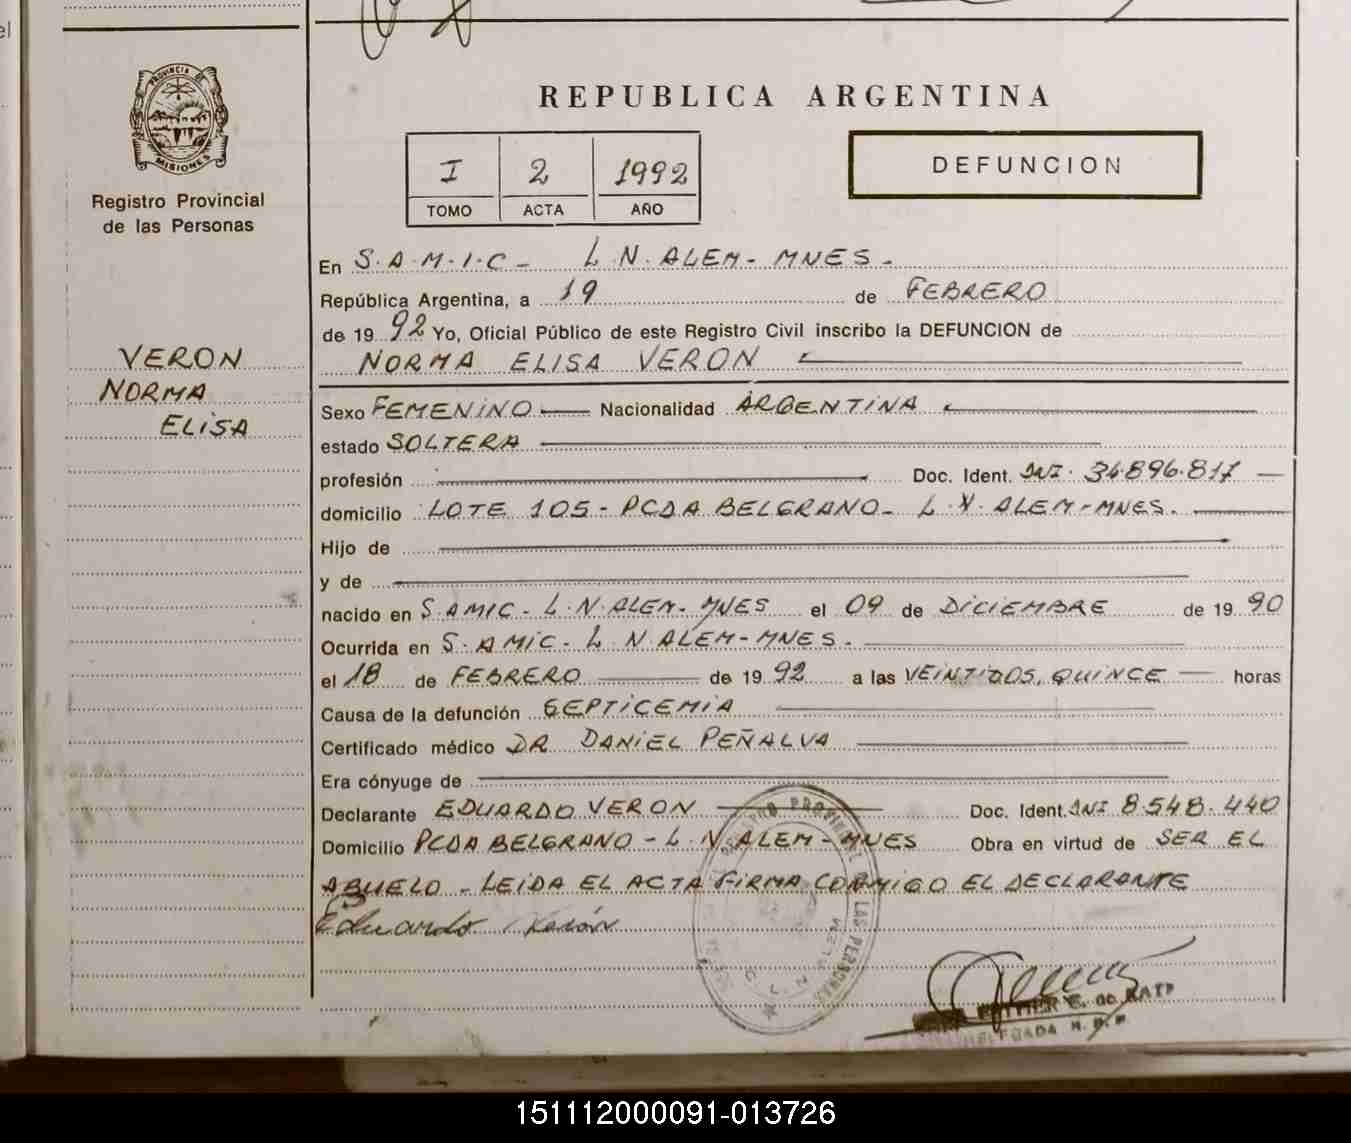 el
PROVINCIA DE
MISIONES
Registro Provincial
de las Personas
VERON
NORMA
ELISA
REPUBLICA ARGENTINA
I 2 1992
TOMO ACTA AÑO
DEFUNCION
En S.A.M.I.C- L.N.ALEM- MNES-
República Argentina, a 19 de FEBRERO
de 19 92 Yo, Oficial Público de este Registro Civil inscribo la DEFUNCION de
NORMA ELISA VERON
Sexo FEMENINO Nacionalidad ARGENTINA
estado SOLTERA
profesión Doc. Ident. DNI. 34.896.817
domicilio LOTE 105- PCDA BELGRANO- L.N. ALEM-MNES.
Hijo de
y de
nacido en SAMIC- L.N.ALEM- MNES el 09 de DICIEMBRE de 19 90
Ocurrida en S.AMIC- L.N ALEM-MNES.
el 18 de FEBRERO de 19 92 a las VEINTIDOS, QUINCE horas
Causa de la defunción SEPTICEMIA
Certificado médico DR DANIEL PEÑALVA
Era cónyuge de
Declarante EDUARDO VERON Doc. Ident. DNI 8.548.440
Domicilio PCDA BELGRANO-L.N.ALEM-MNES Obra en virtud de SER EL
ABUELO- LEIDA EL ACTA FIRMA CONMIGO EL DECLARANTE
Eduardo Verón
PROVINCIAL DE LAS PERSONAS
L. N. ALEM
ESTHER E. de RATP
DELEGADA R. P. P.
151112000091-013726